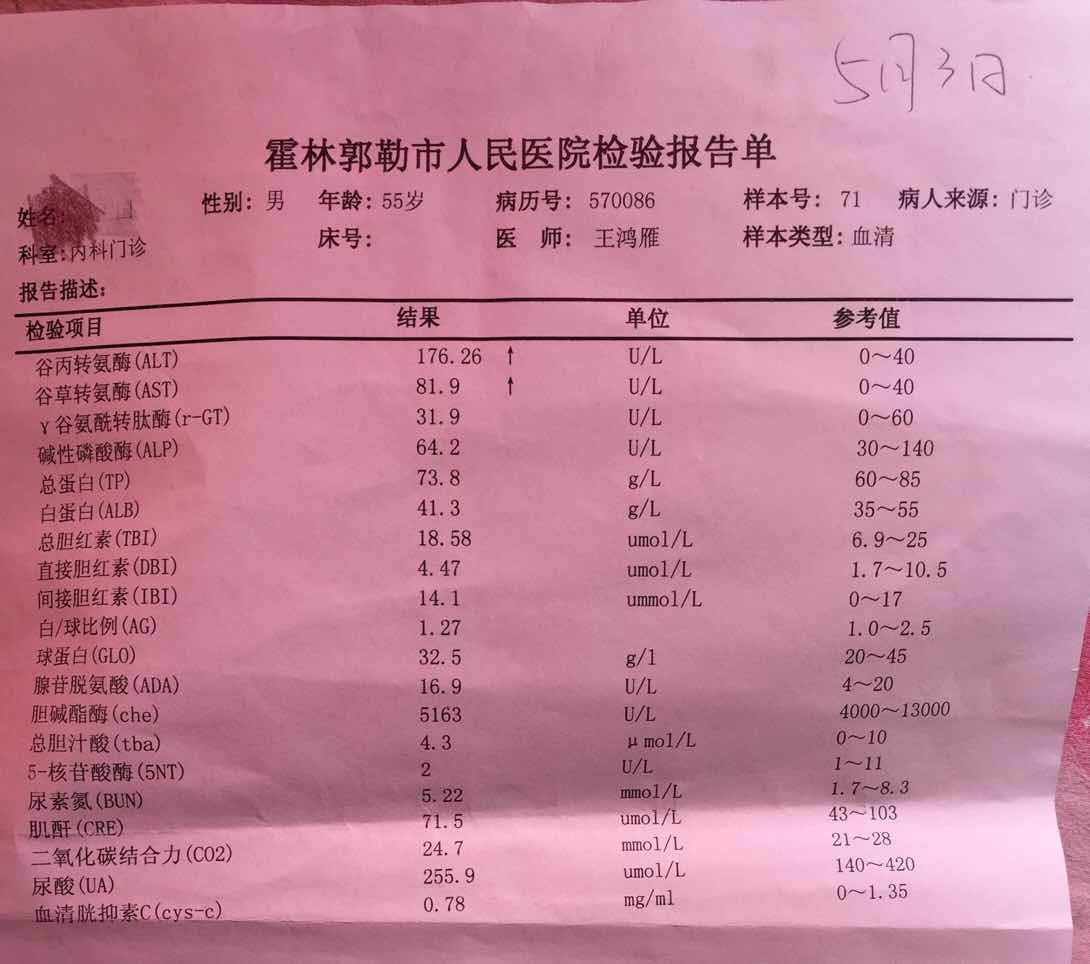 5月3日
霍林郭勒市人民医院检验报告单
姓名: 性别: 男 年龄: 55岁 病历号: 570086 样本号: 71 病人来源: 门诊
科室: 内科门诊 床号: 医 师: 王鸿雁 样本类型: 血清
报告描述:
检验项目 结果 单位 参考值
谷丙转氨酶(ALT) 176.26 ↑ U/L 0～40
谷草转氨酶(AST) 81.9 ↑ U/L 0～40
γ谷氨酰转肽酶(r-GT) 31.9 U/L 0～60
碱性磷酸酶(ALP) 64.2 U/L 30～140
总蛋白(TP) 73.8 g/L 60～85
白蛋白(ALB) 41.3 g/L 35～55
总胆红素(TBI) 18.58 umol/L 6.9～25
直接胆红素(DBI) 4.47 umol/L 1.7～10.5
间接胆红素(IBI) 14.1 ummol/L 0～17
白/球比例(AG) 1.27 1.0～2.5
球蛋白(GLO) 32.5 g/l 20～45
腺苷脱氨酸(ADA) 16.9 U/L 4～20
胆碱酯酶(che) 5163 U/L 4000～13000
总胆汁酸(tba) 4.3 μmol/L 0～10
5-核苷酸酶(5NT) 2 U/L 1～11
尿素氮(BUN) 5.22 mmol/L 1.7～8.3
肌酐(CRE) 71.5 umol/L 43～103
二氧化碳结合力(CO2) 24.7 mmol/L 21～28
尿酸(UA) 255.9 umol/L 140～420
血清胱抑素C(cys-c) 0.78 mg/ml 0～1.35